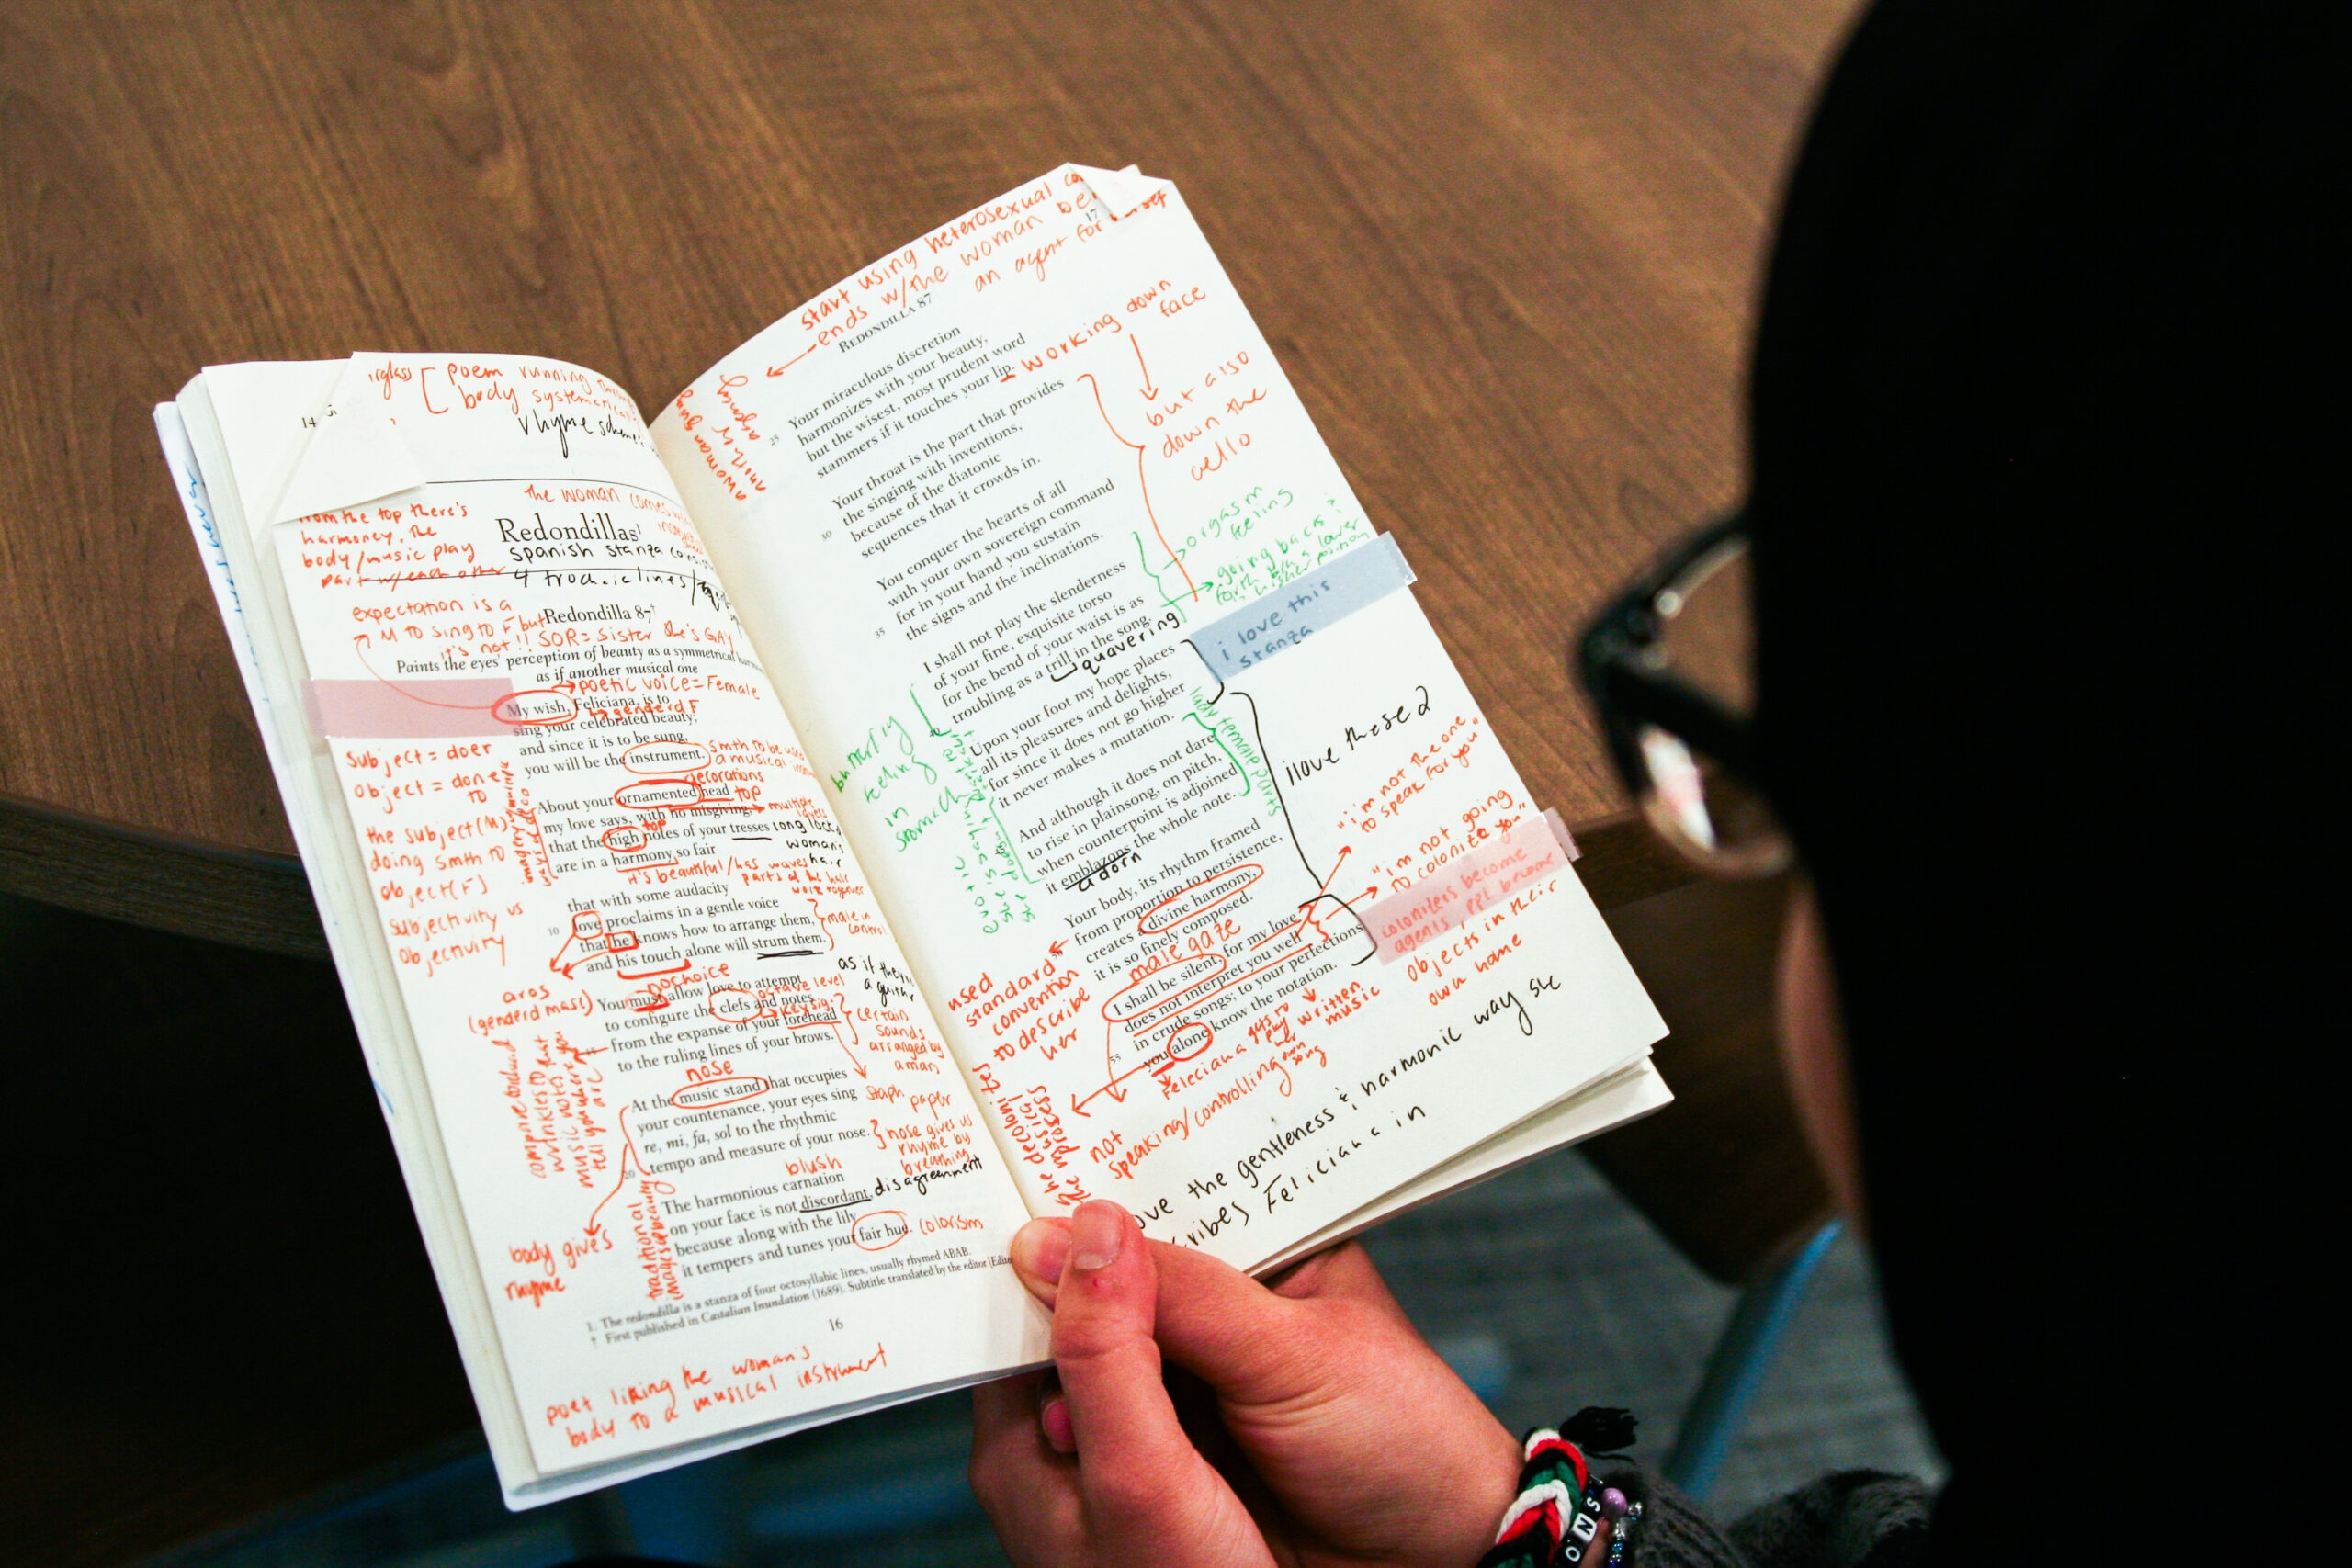 14
irglass
poem running
body systematical
rhyme scheme
from the top there's
harmoney, the
body/music play
part w/each other
the woman comes
Redondillas¹
spanish stanza
4 trochaic lines
expectation is a
M to sing to F but
it's not!! SOR = sister she's GAY
Redondilla 87†
Paints the eyes' perception of beauty as a symmetrical
as if another musical one
poetic voice = Female
↳ genderd F
My wish, Feliciana, is to
sing your celebrated beauty;
and since it is to be sung,
you will be the instrument.
smth to be used
a musical
decorations
top
About your ornamented head
my love says, with no misgiving,
that the high notes of your tresses
are in a harmony so fair
top
multiple
long lock
womans
hair
it's beautiful/has waves
parts of the hair
work together
that with some audacity
10
love proclaims in a gentle voice
that he knows how to arrange them,
and his touch alone will strum them.
male in
control
no choice
as if they're
a guitar
You must allow love to attempt
to configure the clefs and notes
from the expanse of your forehead
to the ruling lines of your brows.
octave level
keysig.
certain
sounds
arranged by
a man
nose
At the music stand that occupies
your countenance, your eyes sing
re, mi, fa, sol to the rhythmic
20
tempo and measure of your nose.
staph paper
nose gives us
rhyme by
breathing
blush
The harmonious carnation
on your face is not discordant,
because along with the lily
it tempers and tunes your fair hue.
disagreement
colorism
Subject = doer
object = done
to
the subject(M)
doing smth to
object(F)
subjectivity vs
objectivity
aros
(genderd masc)
compare forehead
wrinkles to
music notes
tell you where
traditional
images of beauty
body gives
rhyme
1. The redondilla is a stanza of four octosyllabic lines, usually rhymed ABAB.
† First published in Castalian Inundation (1689). Subtitle translated by the editor [Edito
16
poet liking the woman's
body to a musical instrument
start using heterosexual
ends w/the woman
an agent for herself
17
Redondilla 87
Your miraculous discretion
25
harmonizes with your beauty,
but the wisest, most prudent word
stammers if it touches your lip.
working down
face
but also
down the
cello
Your throat is the part that provides
the singing with inventions,
30
because of the diatonic
sequences that it crowds in.
You conquer the hearts of all
with your own sovereign command
35
for in your hand you sustain
the signs and the inclinations.
orgasm
feeling
going back &
forth
I shall not play the slenderness
of your fine, exquisite torso
for the bend of your waist is as
troubling as a trill in the song.
quavering
i love this
stanza
Upon your foot my hope places
all its pleasures and delights,
for since it does not go higher
it never makes a mutation.
butterfly
feeling
in
stomach
erotic
lady female parts
And although it does not dare
to rise in plainsong, on pitch,
when counterpoint is adjoined
it emblazons the whole note.
adorn
i love these 2
Your body, its rhythm framed
from proportion to persistence,
creates a divine harmony,
it is so finely composed.
male gaze
I shall be silent, for my love
does not interpret you well
55
in crude songs; to your perfections
you alone know the notation.
"i'm not the one
to speak for you"
"i'm not going
to colonize you"
colonizers become
agents, ppl become
objects in their
own home
used
standard
convention
to describe
her
she decolonizes
the musical
process
written
music
Feleciana gets to
play her own
song
not
speaking/controlling
ove the gentleness & harmonic way she
cribes Feliciana in
ONS